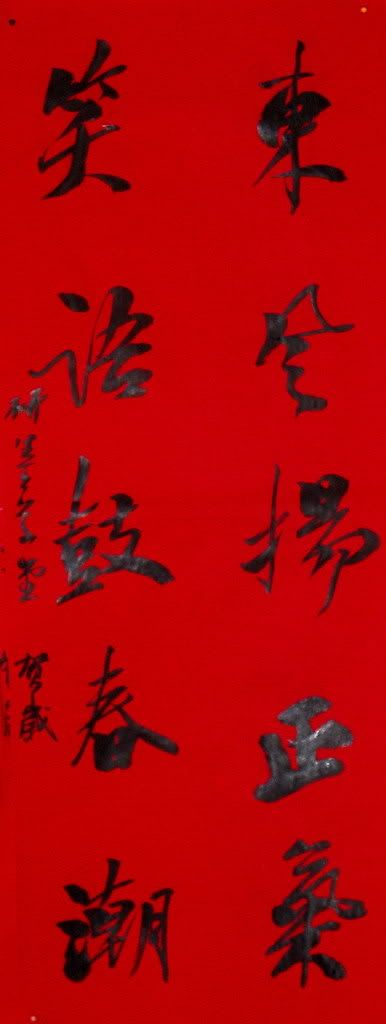 東風揚正氣
笑語鼓春潮
賀歲